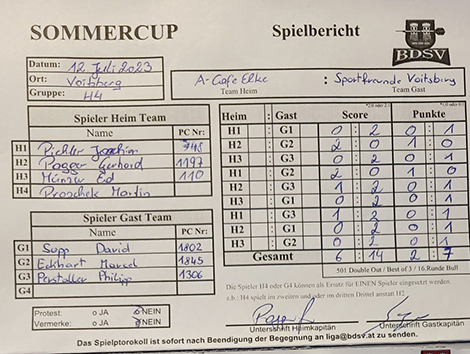 SOMMERCUP Spielbericht
BDSV
Datum: 12. Juli 2023
Ort: Voitsberg
Gruppe: H4
A-Cafe Elke : Sportfreunde Voitsburg
Team Heim Team Gast
Spieler Heim Team
Name PC Nr:
H1 Pichler Joachim 748
H2 Pagger Gerhard 1197
H3 Münzer Ed 110
H4 Proschek Martin
Spieler Gast Team
Name PC Nr:
G1 Supp David 1802
G2 Eckhart Marcel 1845
G3 Perstaller Philipp 1306
G4
Protest: O JA NEIN
Vermerke: O JA NEIN
Heim : Gast Score Punkte
H1 : G1 0 : 2 0 : 1
H2 : G2 2 : 0 1 : 0
H3 : G3 0 : 2 0 : 1
H1 : G2 2 : 0 1 : 0
H2 : G3 1 : 2 0 : 1
H3 : G1 0 : 2 0 : 1
H1 : G3 1 : 2 0 : 1
H2 : G1 0 : 2 0 : 1
H3 : G2 0 : 2 0 : 1
Gesamt 6 : 14 2 : 7
501 Double Out / Best of 3 / 16.Runde Bull
Die Spieler H4 oder G4 können als Ersatz für EINEN Spieler eingesetzt werden.
z.b.: H4 spielt im zweiten und oder im dritten Drittel anstatt H2
Unterschrift Heimkapitän Unterschrift Gastkapitän
Das Spielprotokoll ist sofort nach Beendigung der Begegnung an liga@bdsv.at zu senden.